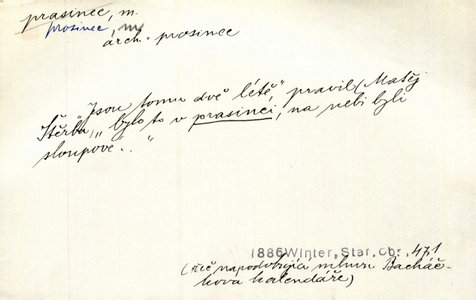 prasinec, m.
prosinec,
arch. prosinec
"Jsou tomu dvě létě," pravil (Matěj
Štěrba, "bylo to v prasinci, na nebi byli
sloupové..."
1886 Winter, Star. obr. 471
(řeč napodobující mluvu Bacháč-
kova kalendáře)